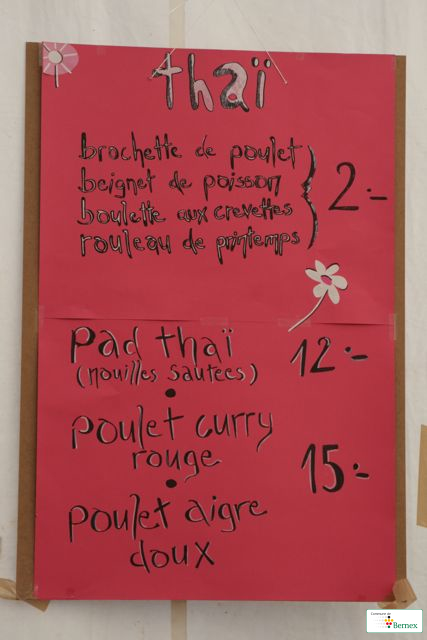 thaï
brochette de poulet
beignet de poisson
boulette aux crevettes
rouleau de printemps
2.-
pad thaï
(nouilles sautées)
12.-
poulet curry
rouge
15.-
poulet aigre
doux
Commune de
Bernex